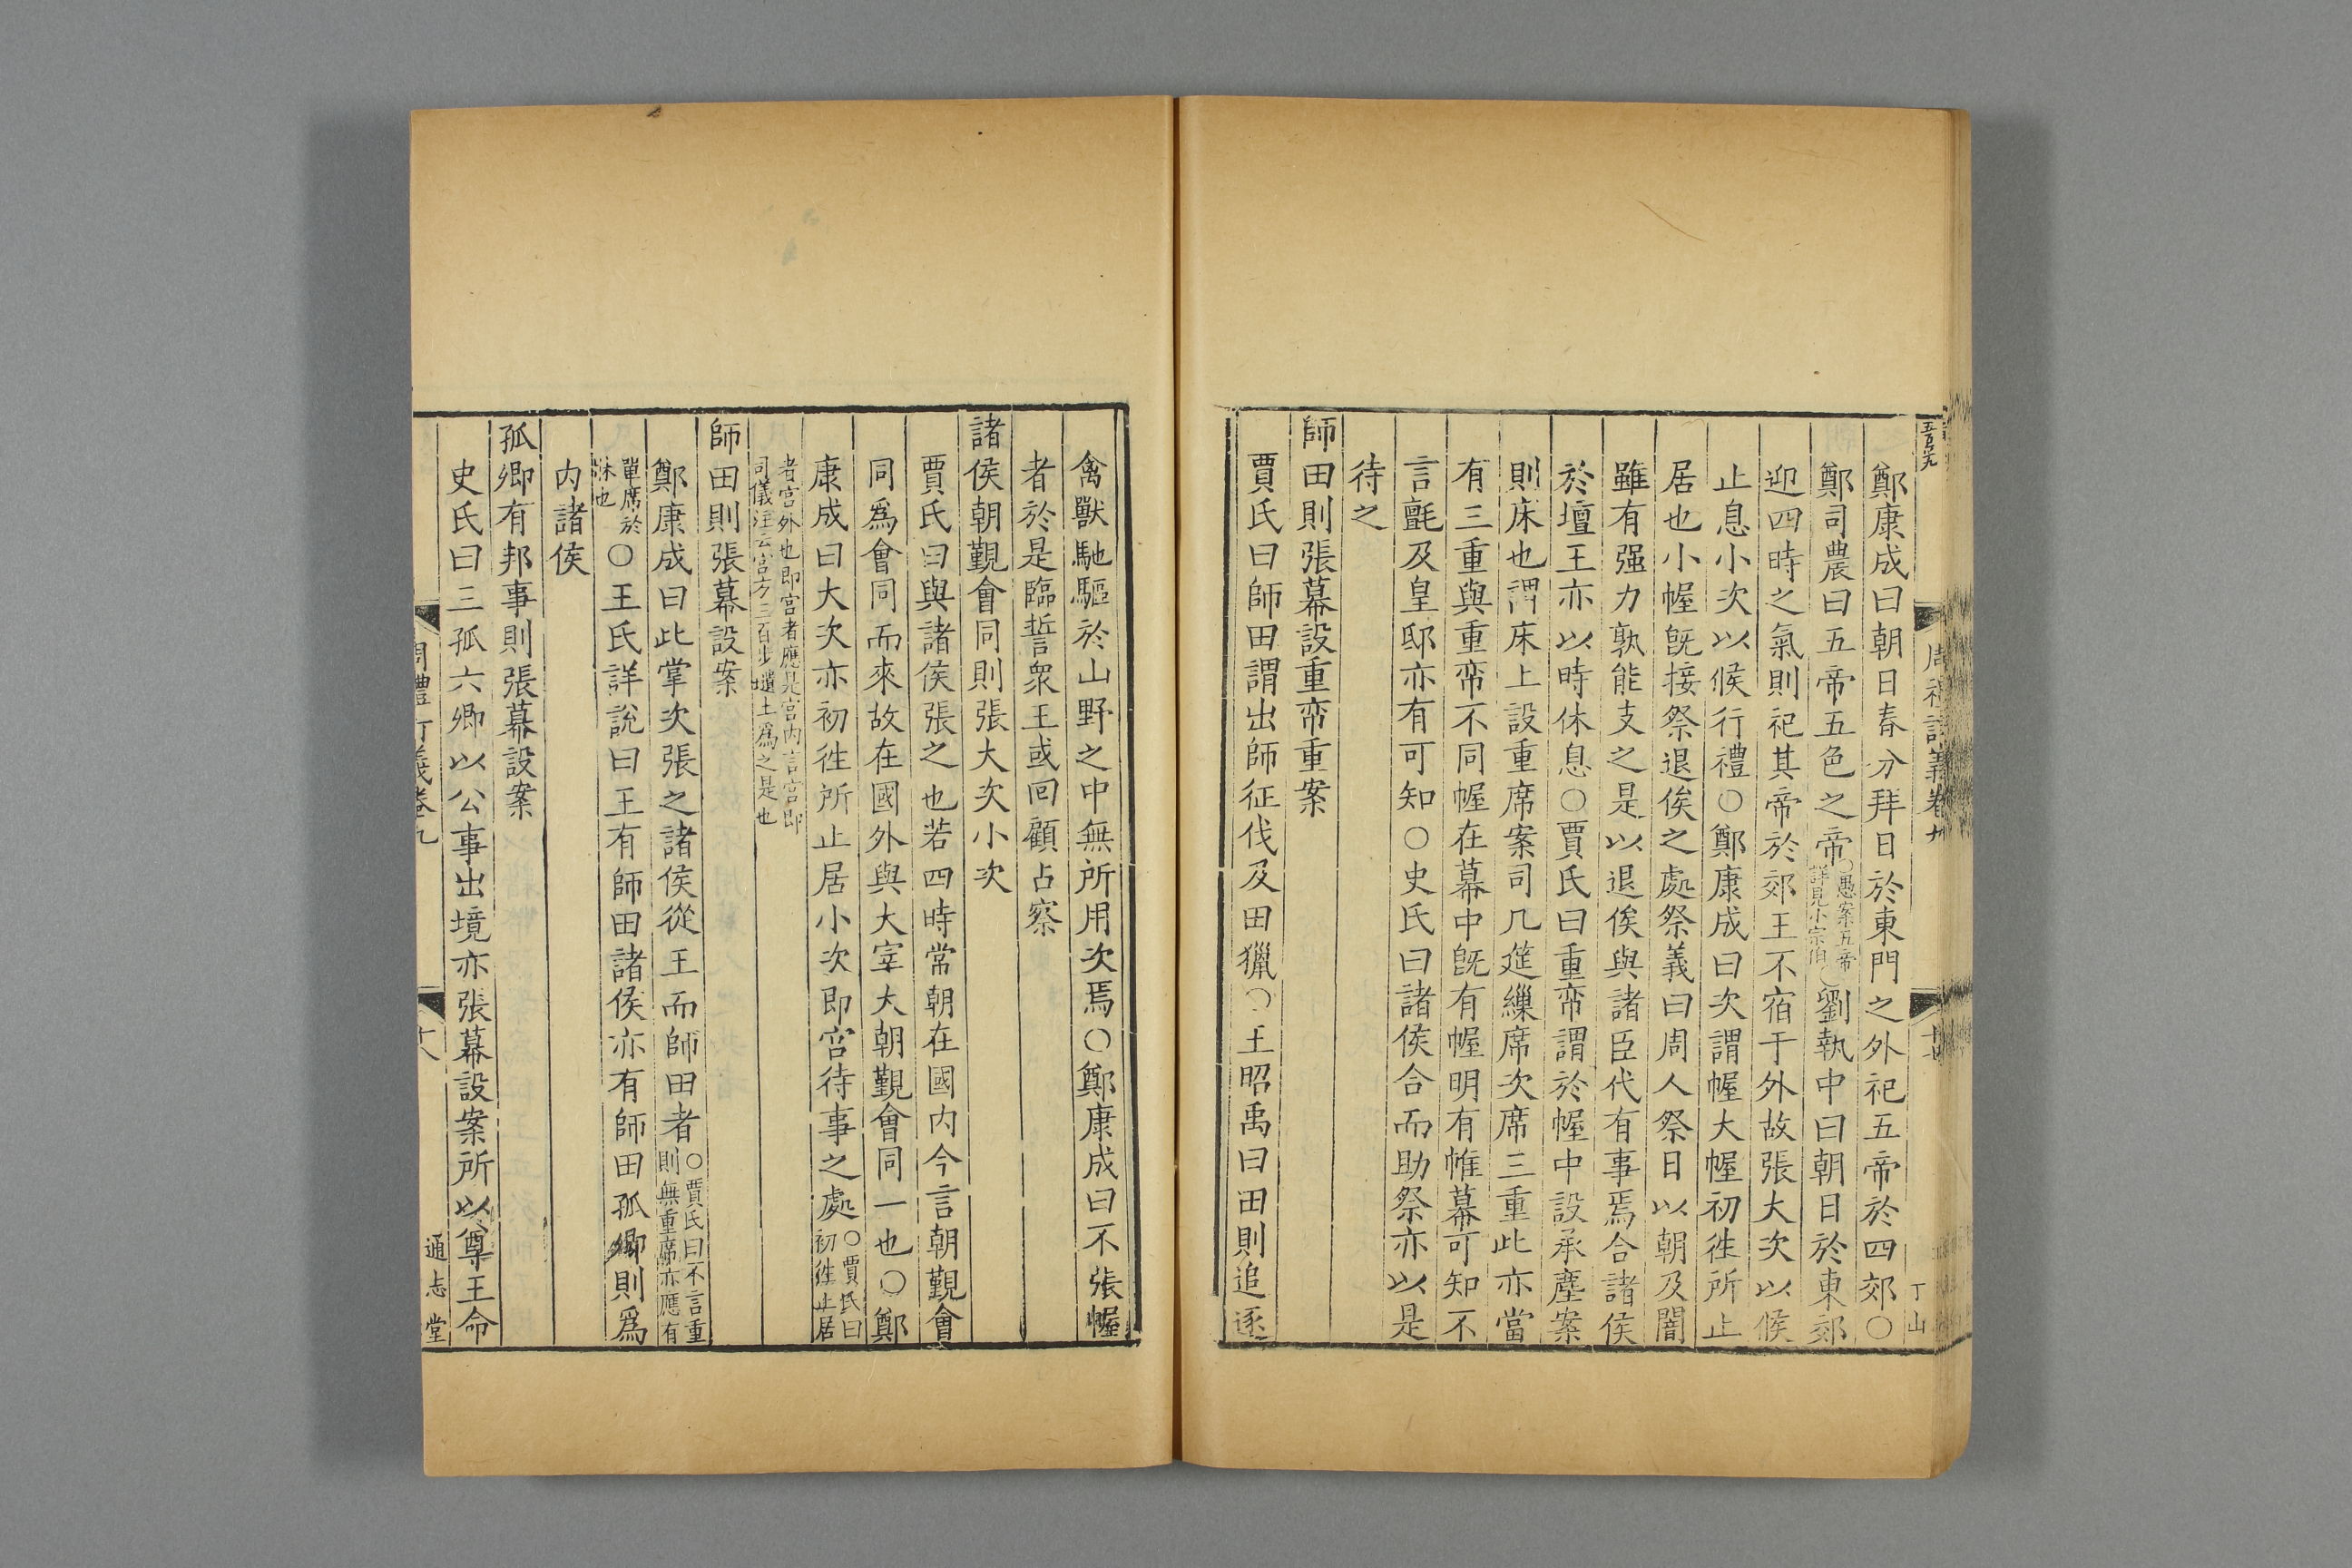 鄭康成曰朝日春分拜日於東門之外祀五帝於四郊○
鄭司農曰五帝五色之帝○愚案五帝詳見小宗伯○劉執中曰朝日於東郊
迎四時之氣則祀其帝於郊王不宿于外故張大次以候
止息小次以候行禮○鄭康成曰次謂幄大幄初徃所止
居也小幄旣接祭退俟之處祭義曰周人祭日以朝及闇
雖有强力孰能支之是以退俟與諸臣代有事焉合諸侯
於壇王亦以時休息○賈氏曰重帟謂於幄中設承塵案
則床也謂床上設重席案司几筵繅席次席三重此亦當
有三重與重帟不同幄在幕中旣有幄明有帷幕可知不
言氈及皇邸亦有可知○史氏曰諸侯合而助祭亦以是
待之
師田則張幕設重帟重案
賈氏曰師田謂出師征伐及田獵○王昭禹曰田則追逐
丁山
禽獸馳驅於山野之中無所用次焉○鄭康成曰不張幄
者於是臨誓衆王或回顧占察
諸侯朝覲會同則張大次小次
賈氏曰與諸侯張之也若四時常朝在國内今言朝覲會
同爲會同而來故在國外與大宰大朝覲會同一也○鄭
康成曰大次亦初徃所止居小次即宫待事之處○賈氏曰初徃止居
者宫外也即宫者應是宫内言宫即司儀注云宫方三百步壝土爲之是也
師田則張幕設案
鄭康成曰此掌次張之諸侯從王而師田者○賈氏曰不言重則無重席亦應有
單席於牀也○王氏詳說曰王有師田諸侯亦有師田孤卿則爲
内諸侯
孤卿有邦事則張幕設案
史氏曰三孤六卿以公事出境亦張幕設案所以尊王命
周禮訂義卷九
十八
通志堂